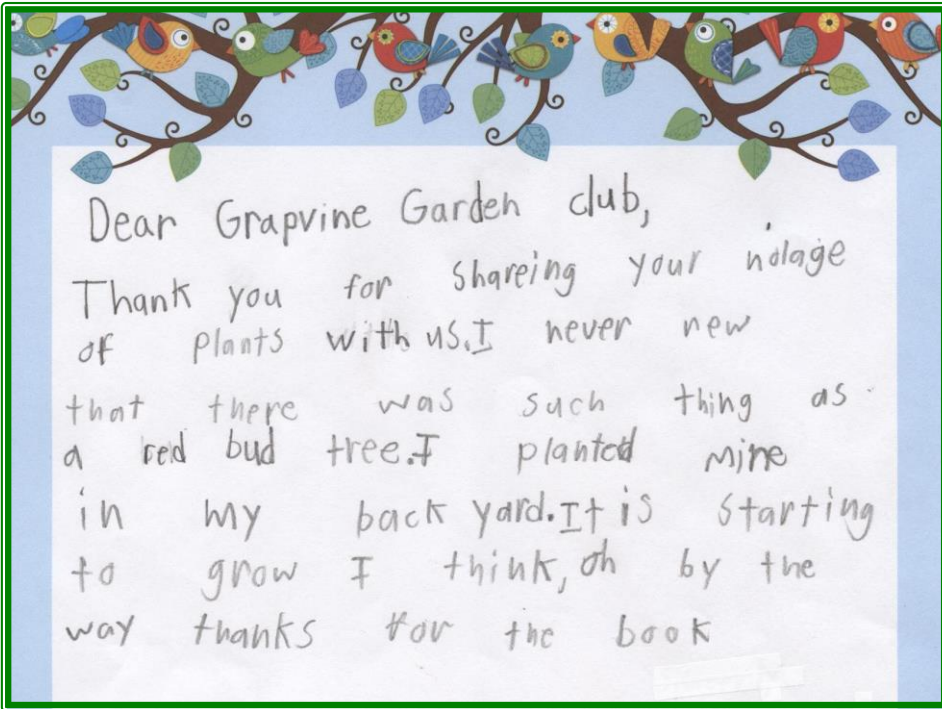 Dear Grapvine Garden club,
Thank you for shareing your nolage
of plants with us.I never new
that there was such thing as
a red bud tree.I planted mine
in my back yard.It is starting
to grow I think, oh by the
way thanks for the book